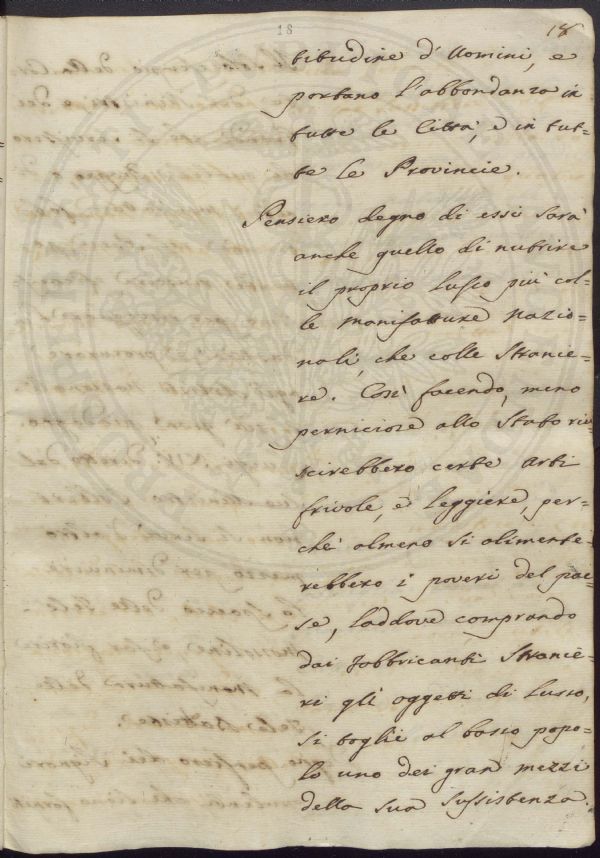 18
18
titudine d'Uomini, e
portano l'abbondanza in
tutte le Città, e in tut=
te le Provincie.
Pensiero degno di essi sarà
anche quello di nutrire
il proprio Lusso più col=
le manifatture nazio=
nali, che colle Stranie=
re. Così facendo, meno
perniciose allo Stato riu=
scirebbero certe Arti
frivole, e leggiere, per=
chè almeno si alimente=
rebbero i poveri del pae=
se, laddove comprando
dai fabbricanti Stranie=
ri gli oggetti di Lusso,
si toglie al basso popo=
lo uno dei gran mezzi
della sua sussistenza.